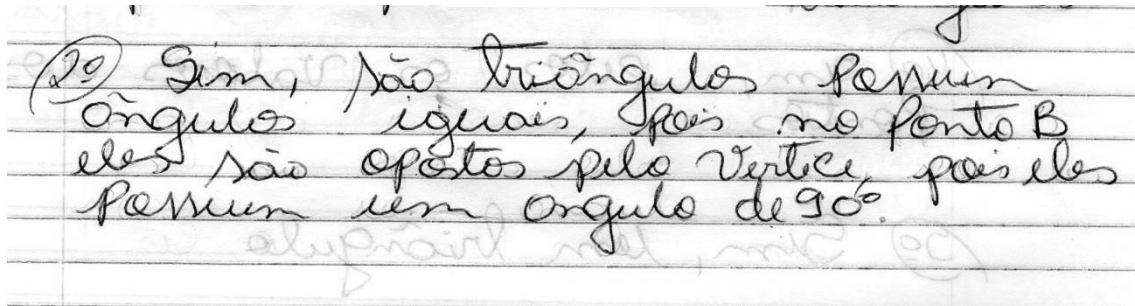 2º Sim, são triângulos possuem
ângulos iguais, pois no ponto B
eles são opostos pelo vertice, pois eles
possuem um angulo de 90º.